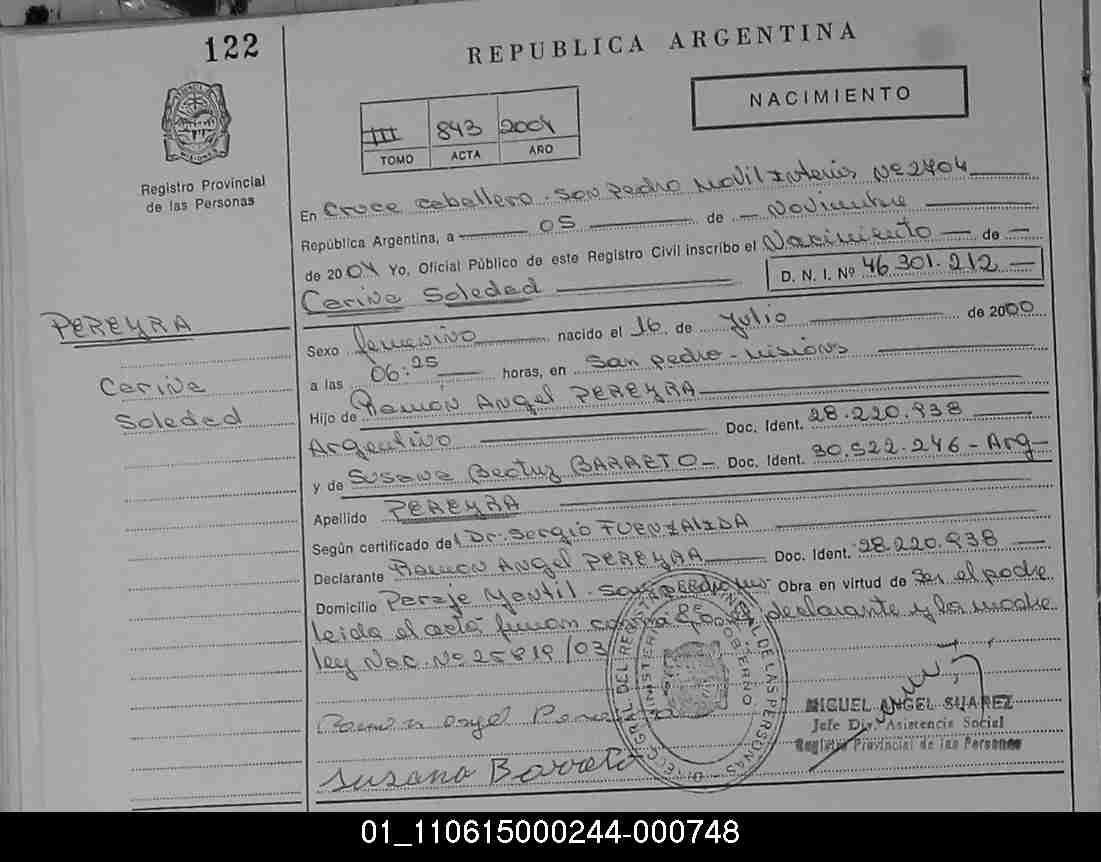 122
REPUBLICA ARGENTINA
NACIMIENTO
III 843 2004
TOMO ACTA AÑO
Registro Provincial
de las Personas
En Cruce Caballero - San Pedro Movil Interior Nº 2404
República Argentina, a 05 de Noviembre
de 2004 Yo, Oficial Público de este Registro Civil inscribo el Nacimiento de
Carina Soledad D. N. I. Nº 46.301.212
PEREYRA
Carina
Soledad
Sexo femenino nacido el 16 de Julio de 2000
a las 06:25 horas, en San Pedro - Misiones
Hijo de Ramon Angel PEREYRA
Argentino Doc. Ident. 28.220.938
y de Susana Beatriz BARRETO Doc. Ident. 30.522.246 - Arg
Apellido PEREYRA
Según certificado del Dr. Sergio FUENZALIDA
Declarante Ramon Angel PEREYRA Doc. Ident. 28.220.938
Domicilio Paraje Gentil - San Pedro Obra en virtud de Ser el padre
leida el acta firman declarante y la madre
ley Nac. Nº 25819/03
Ramon Angel Pereyra
Susana Barreto
MIGUEL ANGEL SUAREZ
Jefe Div. Asistencia Social
Registro Provincial de las Personas
01_110615000244-000748